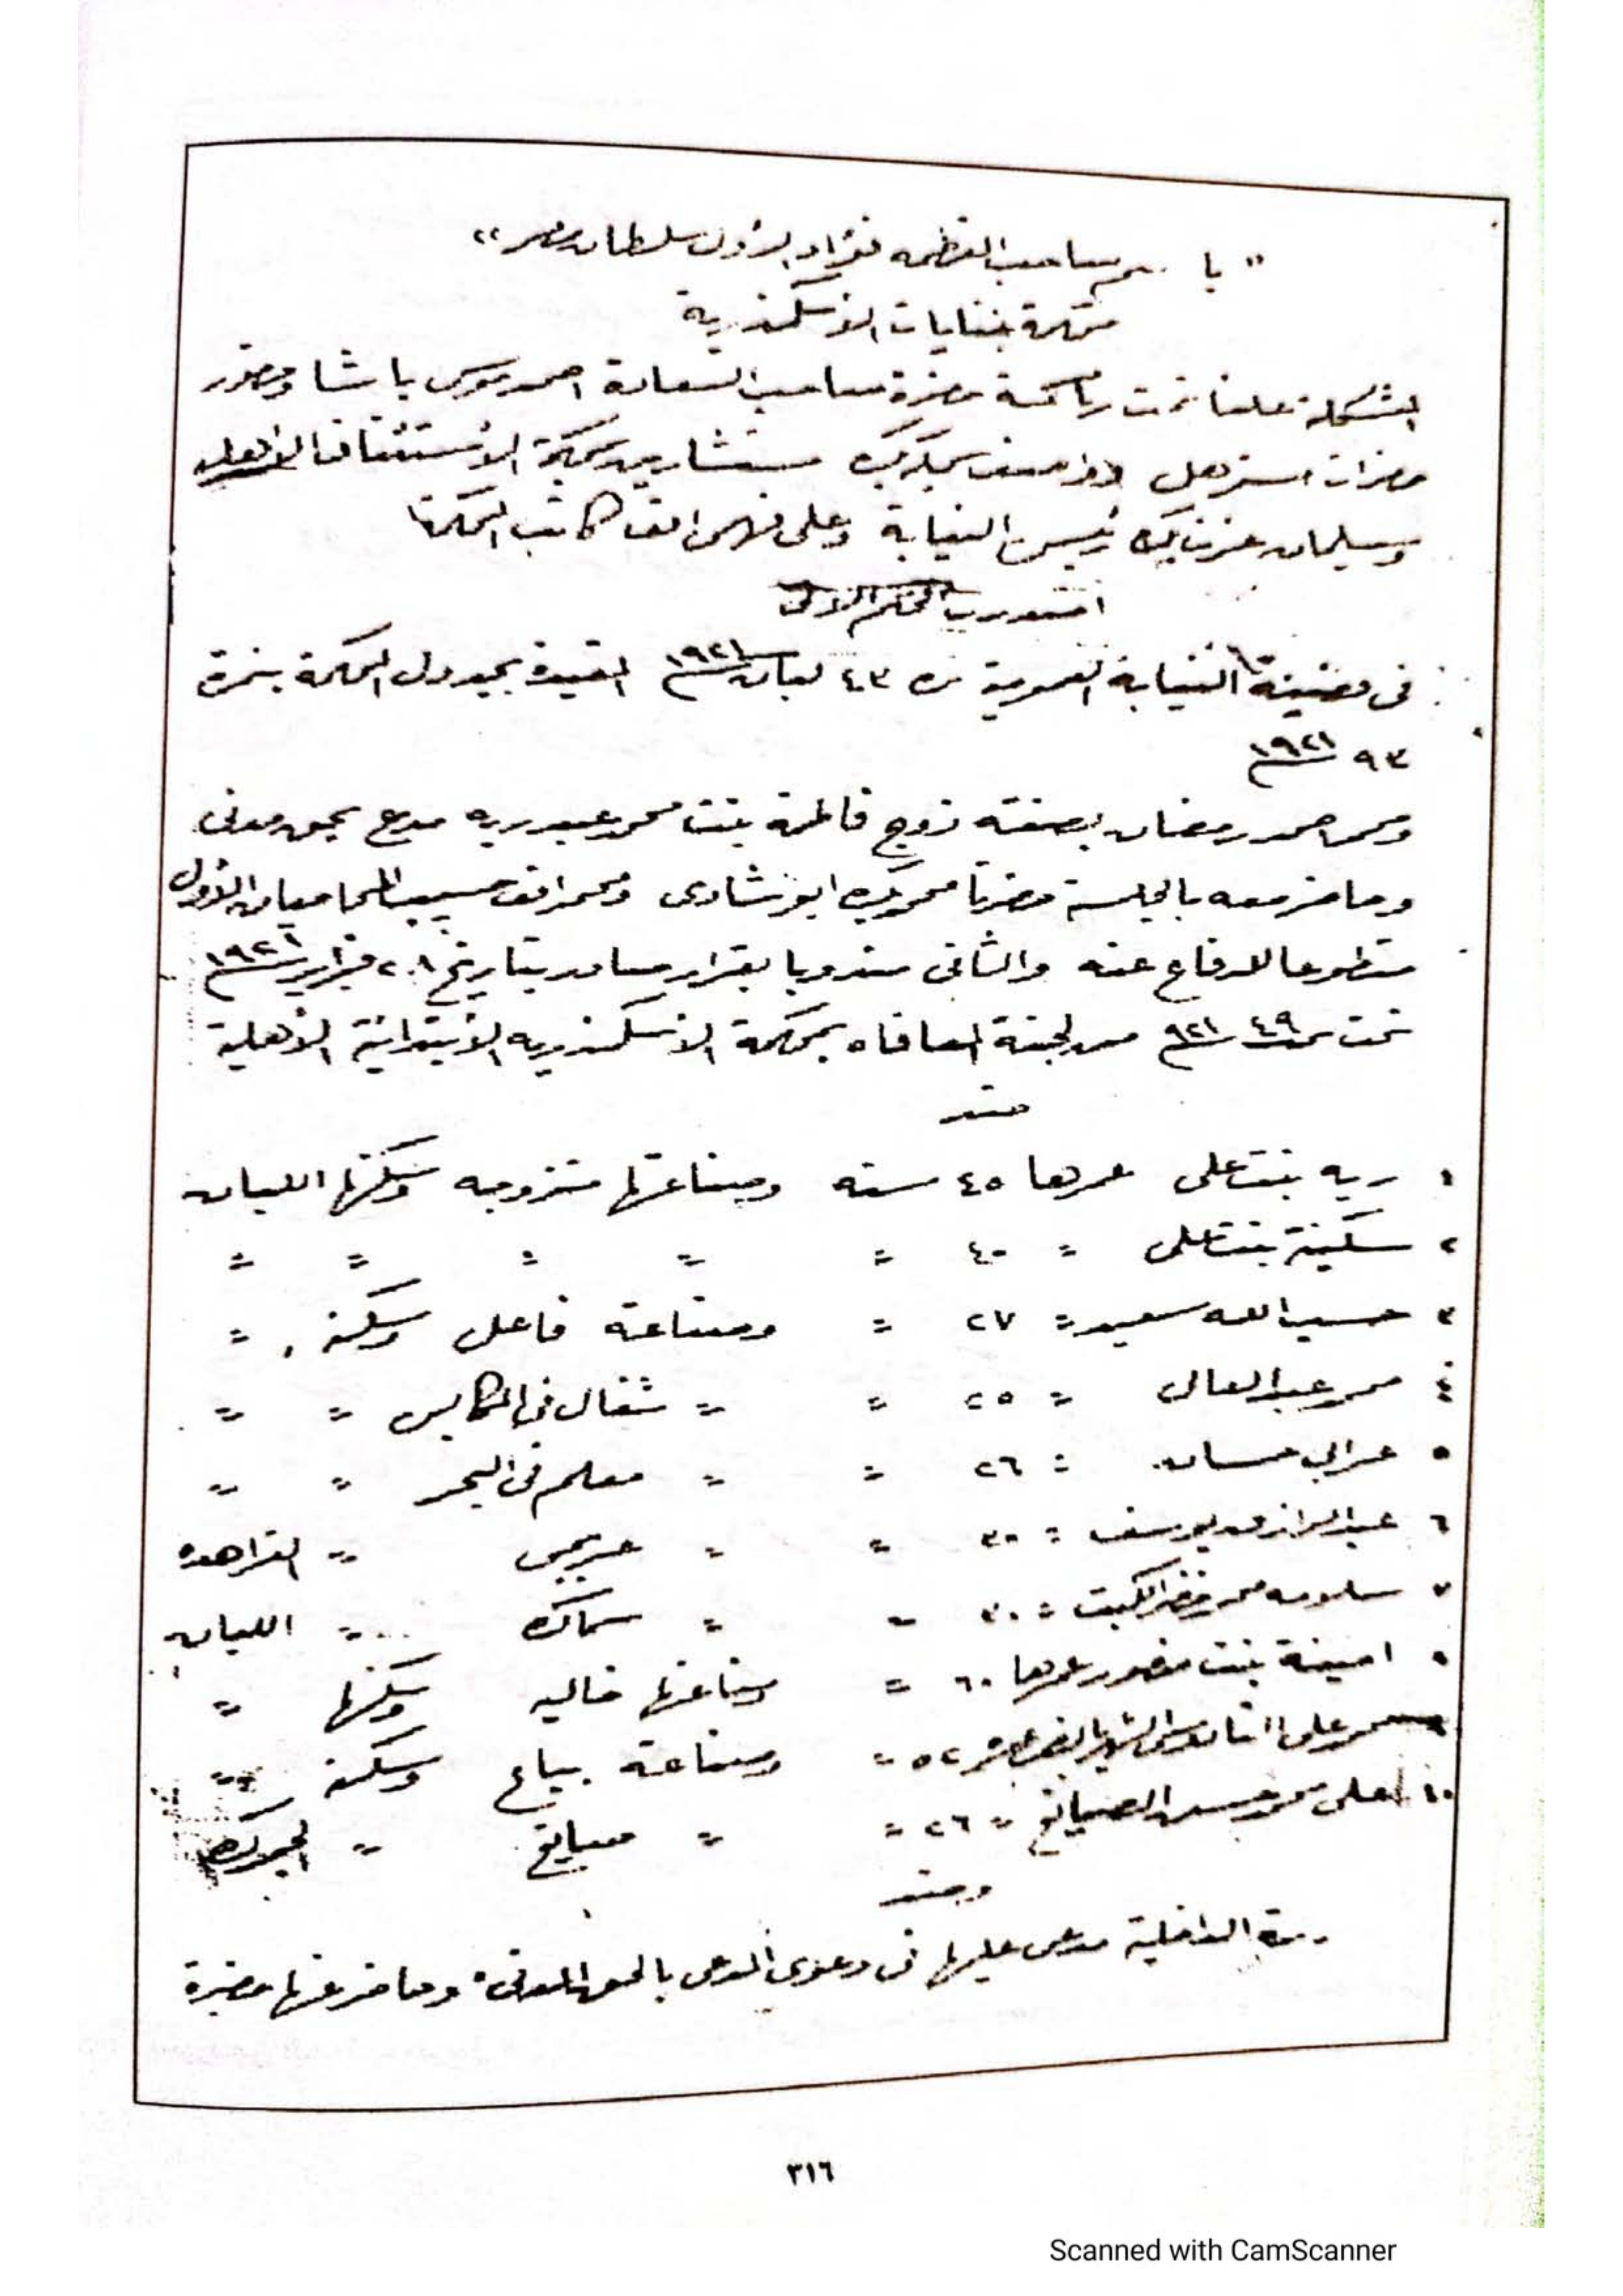 " باسم صاحب العظمه فؤاد الاول سلطان مصر "
محكمة جنايات الاسكندرية
المشكلة علنا تحت رياسة حضرة صاحب السعادة احمد موسى باشا وحضور
حضرات مستر هل وواصف سميكه بك مستشارين بمحكمة الاستئناف الاهلية
وسليمان عزت بك رئيس النيابة وعلى فهمى كاتب المحكمة
اصدرت الحكم الاتى
فى قضية النيابة العمومية نمرة ٤٣ لبان سنة ١٩٢١ المقيدة بجدول المحكمة بنمرة
٩٣ سنة ١٩٢١
ومحمد احمد رمضان بصفته زوج فاطمة بنت محمد عبد ربه مدع بحق مدنى
وحاضر معه بالجلسة حضرتا محمد بك ابو شادى ومحمد افندى حسيب المحاميان الاول
متطوعا للدفاع عنه والثانى مندوبا بقرار صادر بتاريخ ٢٠٨ فبراير سنة ١٩٢١
تحت نمرة ٤٩ سنة ٩٢١ من لجنة المعافاه بمحكمة الاسكندريه الابتدائية الاهلية
ضد
١ ريه بنت على عمرها ٤٥ سنه وصناعتها متزوجه وسكنها اللبان
٢ سكينة بنت على " ٤٠ " " " " "
٣ حسب الله سعيد " ٢٧ " وصناعته فاعل وسكنه "
٤ محمد عبد العال " ٢٥ " " شغال فى المكابس " "
٥ عرابي حسان " ٢٦ " " معلم فى البحر " "
٦ عبد الرازق يوسف " ٣٠ " " عربجى " الفراهده
٧ سلامه محمد خضر الكبت " ٣٠ " " سماك " اللبان
٨ امينة بنت منصور عمرها ٦٠ " وصناعتها خاليه وسكنها "
٩ محمد على القادوسى الشهير بالنص عمره ٥٢ " وصناعته بياع وسكنه "
١٠ على محمد حسن الصايغ " ٢٦ " " صايغ " الجمرك
وضد
وزارة الداخلية مدعى عليها فى دعوى المدعى بالحق المدنى وحاضر عنها حضرة
٣١٦
Scanned with CamScanner